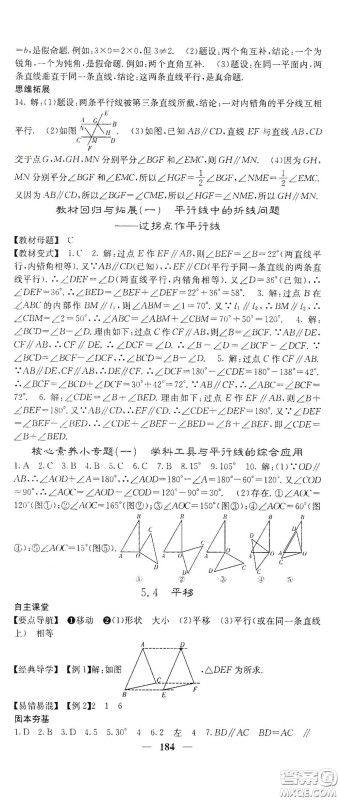 =b,是假命题.例如:3×0=2×0,但3≠2. (2)题设:两个角互补,结论:一个为
锐角,一个为钝角,是假命题. (3)题设:在同一平面内,两
条直线垂直于同一条直线,结论:这两条直线平行,是真命题.
思维拓展
14. 解:(1)题设:两条平行线被第三条直线所截,结论:一对内错角的平分线互相
平行. (2)如图 (3)如图,已知AB∥CD,直线EF与直线AB,CD
交于点G,M,GH,MN分别平分∠BGF和∠EMC,则GH∥MN. (4)因为GH,
MN分别平分∠BGF和∠EMC,所以∠HGF=1/2∠BGF,∠NME=1/2∠EMC.
又因为AB∥CD,所以∠BGF=∠EMC,所以∠HGF=∠NME,所以GH∥MN.
教材回归与拓展(一) 平行线中的折线问题
——过拐点作平行线
【教材母题】 C
【教材变式】 1. C 2. 解:过点E作EF∥AB,则∠BEF=∠B=22°(两直线平
行,内错角相等).又∵AB∥CD,∴EF∥CD(平行于同一条直线的两条直
线平行).∴∠DEF=∠D(两直线平行,内错角相等).又∵∠D=
36°,∴∠BED=∠BEF+∠DEF=22°+36°=58°. 3. 解:过点B在
∠ABC的内部作BM∥l₁,则∠ABM=∠1=70°.又∵l₁∥l₂,∴BM∥l₂,∴
∠CBM=∠2=50°,∴∠ABC=∠ABM+∠CBM=70°+50°=120°. 4. 解:
∠BCD=∠B-∠D.理由如下:过点C作CF∥AB,则∠B=∠BCF.∵AB∥DE,
CF∥AB,∴CF∥DE.∴∠DCF=∠D.∴∠B-∠D=∠BCF-∠DCF.∵
∠BCD=∠BCF-∠DCF,∴∠BCD=∠B-∠D. 5. 解:过点C作CF∥AB,
∴∠BCF=∠B=30°.∵AB∥DE,∴CF∥DE,∴∠DCF=180°-∠CDE=180°-138°=42°.
∴∠BCD=∠BCF+∠DCF=30°+42°=72°.
6. 解:∠CDE=∠B+∠BED.理由如下:过点E作EF∥AB,则∠B
+∠BEF=180°.又∵AB∥CD,∴EF∥CD,∴∠CDE+∠DEF=180°.又
∵∠DEF=∠BEF-∠BED,∴∠CDE+∠BEF-∠BED=∠B+∠BEF,即∠CDE=∠B+∠BED.
核心素养小专题(一) 学科工具与平行线的综合应用
1. A 2. C 3. B 4. B 5. C 6. B 7. C 8. 15° 9. 105° 10. 解:(1)∵OD∥
AB,∴∠AOD+∠A=180°,∴∠AOD=180°-∠A=180°-60°=120°.又∠COD
=90°,∴∠AOC=∠AOD-∠COD=120°-90°=30°. (2)存在.①∠AOC=
120°(图①);②∠AOC=165°(图②);③∠AOC=150°(图③);④∠AOC=60°(图
④);⑤∠AOC=15°(图⑤).
① ② ③ ④ ⑤
5.4 平移
自主课堂
【要点导航】 ❶移动 ❷(1)形状 大小 (2)平移 (3)平行(或在同一条直线
上) 相等
【经典导学】 【例1】解:如图 ,△DEF为所求.
【易错易混】 【例2】 2 1 6
固本夯基
1. D 2. B 3. D 4. D 5. 30° 6. 2 左 4 7. BD∥AC BD=AC ∥
184